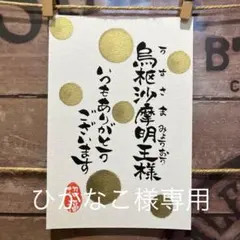 うすさまみょうおう
烏枢沙摩明王様
いつもありがとう
ございます
ひかなこ様専用